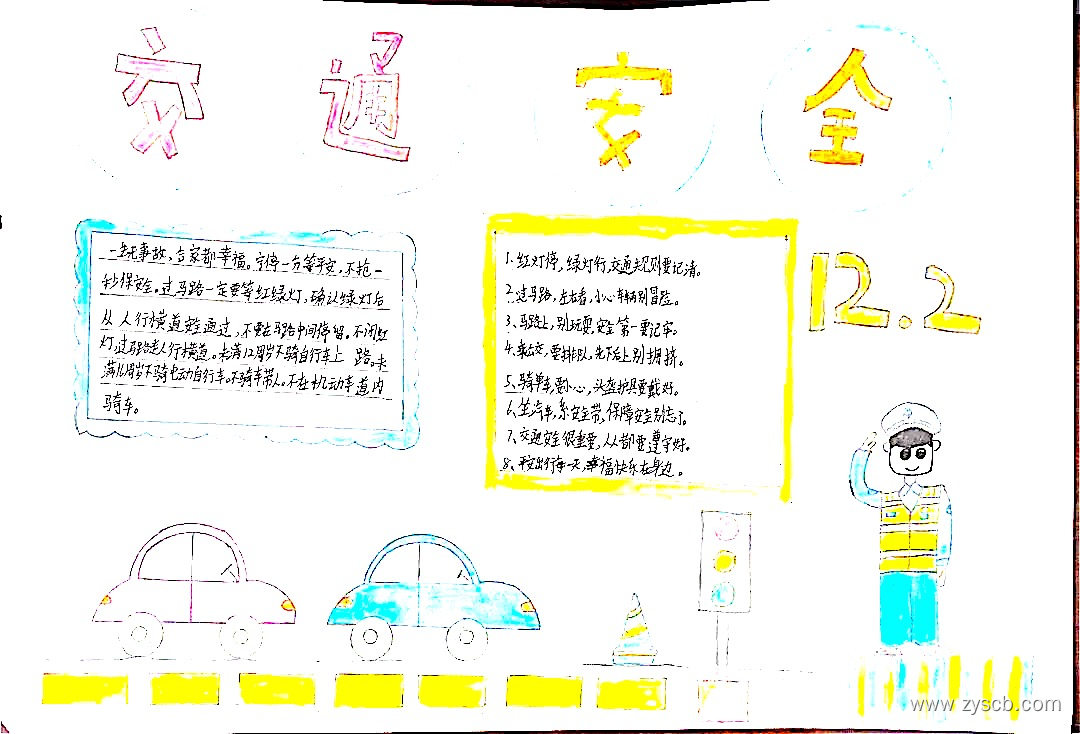 交通安全
一生无事故，合家都幸福。宁停一分等平安，不抢一
秒保安全。过马路一定要等红绿灯，确认绿灯后
从人行横道安全通过，不要在马路中间停留。不闯红
灯，过马路走人行横道。未满12周岁不骑自行车上路。未
满16周岁不骑电动自行车。不骑车带人。不在机动车道内
骑车。
1、红灯停，绿灯行，交通规则要记清。
2、过马路，左右看，小心车辆别冒险。
3、马路上，别玩耍，安全第一要记牢。
4、乘公交，要排队，先下后上别拥挤。
5、骑单车，要小心，头盔护具要戴好。
6、坐汽车，系安全带，保障安全别忘了。
7、交通安全很重要，人人都要遵守好。
8、平安出行每一天，幸福快乐在身边。
12.2
www.zyscb.com